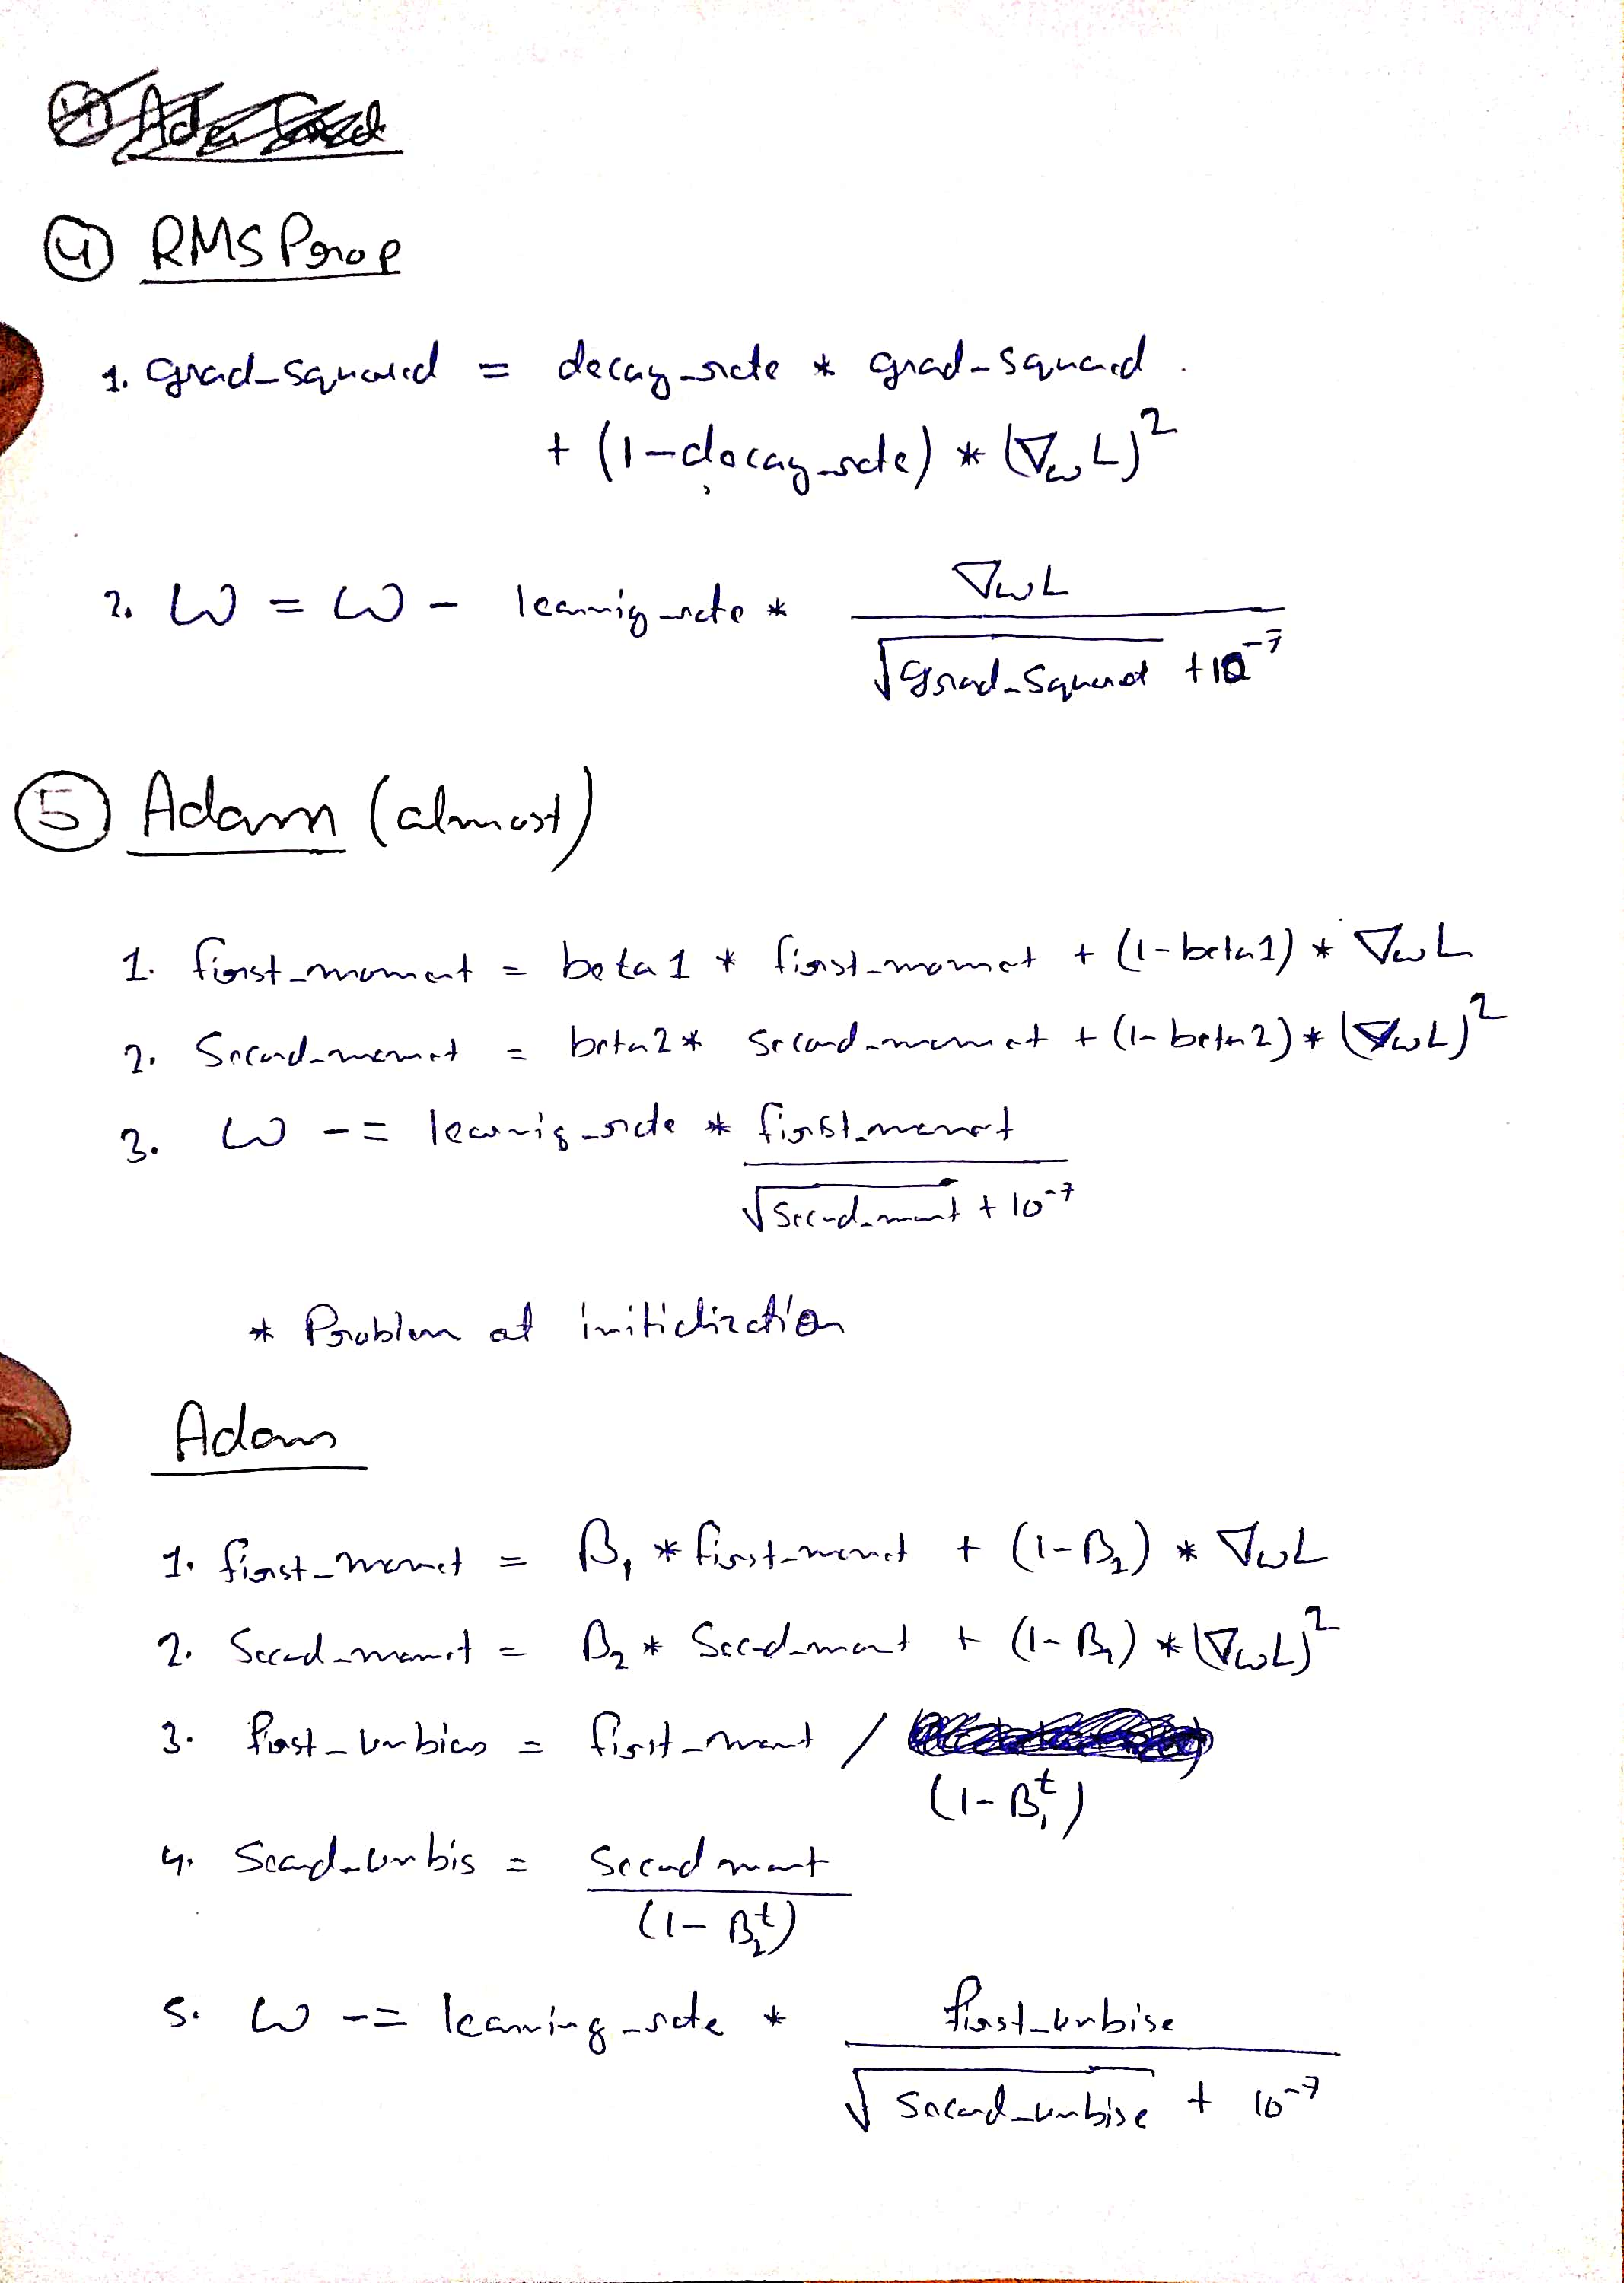 ④ RMS Prop
1. grad_squared = decay_rate * grad_squared
+ (1-decay_rate) * (∇wL)²
2. W = W - learnig_rate * ∇wL / √grad_squared + 10⁻⁷
⑤ Adam (almost)
1. first_moment = beta1 * first_moment + (1-beta1) * ∇wL
2. Second_moment = beta2 * second_moment + (1-beta2) * (∇wL)²
3. W -= learnig_rate * first_moment / √second_moment + 10⁻⁷
* Problem at initialization
Adam
1. first_moment = β₁ * first_moment + (1-β₂) * ∇wL
2. Second_moment = β₂ * Second_moment + (1-β₁) * (∇wL)²
3. first_unbias = first_moment /
(1-β₁ᵗ)
4. Second_unbis = Second moment / (1-β₂ᵗ)
5. W -= learning_rate * first_unbise / √second_unbise + 10⁻⁷